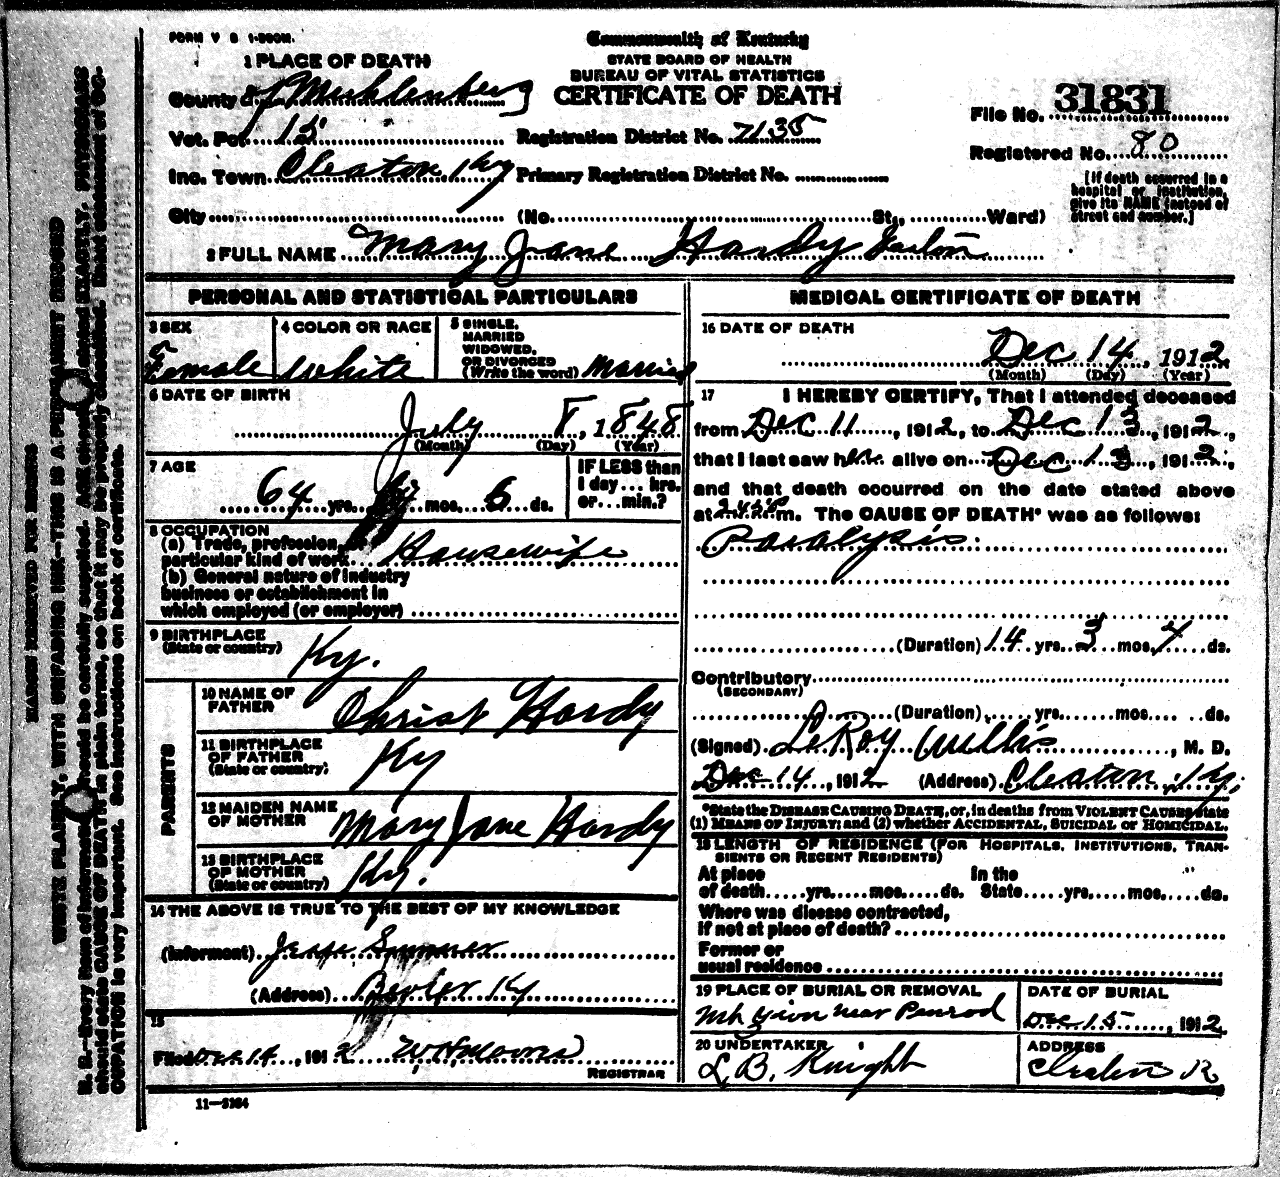 FORM V S 1-200M.
Commonwealth of Kentucky
STATE BOARD OF HEALTH
BUREAU OF VITAL STATISTICS
CERTIFICATE OF DEATH
1 PLACE OF DEATH
County of Muhlenberg
Vot. Pct. 15
Inc. Town Cleaton Ky
City
Registration District No. 7135
Primary Registration District No.
(No. St., Ward)
File No. 31831
Registered No. 80
[If death occurred in a
hospital or institution,
give its NAME instead of
street and number.]
2 FULL NAME Mary Jane Hardy
PERSONAL AND STATISTICAL PARTICULARS
3 SEX
Female
4 COLOR OR RACE
White
5 SINGLE,
MARRIED
WIDOWED,
OR DIVORCED
(Write the word) Married
6 DATE OF BIRTH
July 8, 1848
(Month) (Day) (Year)
7 AGE
64 yrs. mos. 6 ds.
IF LESS than
1 day... hrs.
or... min.?
8 OCCUPATION
(a) Trade, profession,
particular kind of work Housewife
(b) General nature of industry
business or establishment in
which employed (or employer)
9 BIRTHPLACE
(State or country)
Ky.
PARENTS
10 NAME OF
FATHER
Christ Hardy
11 BIRTHPLACE
OF FATHER
(State or country)
Ky
12 MAIDEN NAME
OF MOTHER
Mary Jane Hardy
13 BIRTHPLACE
OF MOTHER
(State or country)
Ky.
14 THE ABOVE IS TRUE TO THE BEST OF MY KNOWLEDGE
(Informant) Jesse Sumner
(Address) Ky
15
Filed Dec 14, 1912 W H Moore
REGISTRAR
11—3184
MEDICAL CERTIFICATE OF DEATH
16 DATE OF DEATH
Dec 14, 1912
(Month) (Day) (Year)
17 I HEREBY CERTIFY, That I attended deceased
from Dec 11, 1912, to Dec 13, 1912,
that I last saw her alive on Dec 13, 1912,
and that death occurred on the date stated above
at m. The CAUSE OF DEATH* was as follows:
Paralysis
(Duration) 14 yrs. 3 mos. 7 ds.
Contributory
(SECONDARY)
(Duration) yrs. mos. ds.
(Signed) LeRoy Willis, M. D.
Dec 14, 1912 (Address) Cleaton, Ky.
*State the DISEASE CAUSING DEATH, or, in deaths from VIOLENT CAUSES, state
(1) MEANS OF INJURY; and (2) whether ACCIDENTAL, SUICIDAL or HOMICIDAL.
18 LENGTH OF RESIDENCE (FOR HOSPITALS, INSTITUTIONS, TRAN-
SIENTS OR RECENT RESIDENTS)
At place In the
of death yrs. mos. ds. State yrs. mos. ds.
Where was disease contracted,
if not at place of death?
Former or
usual residence
19 PLACE OF BURIAL OR REMOVAL
Mt Zion near Penrod
DATE OF BURIAL
Dec 15, 1912
20 UNDERTAKER
L. B. Knight
ADDRESS
Cleaton
MARGIN RESERVED FOR BINDING
WRITE PLAINLY, WITH UNFADING INK—THIS IS A PERMANENT RECORD
N. B.—Every item of information should be carefully supplied. AGE should be stated EXACTLY. PHYSICIANS
should state CAUSE OF DEATH in plain terms, so that it may be properly classified. Exact statement of OC-
CUPATION is very important. See instructions on back of certificate.